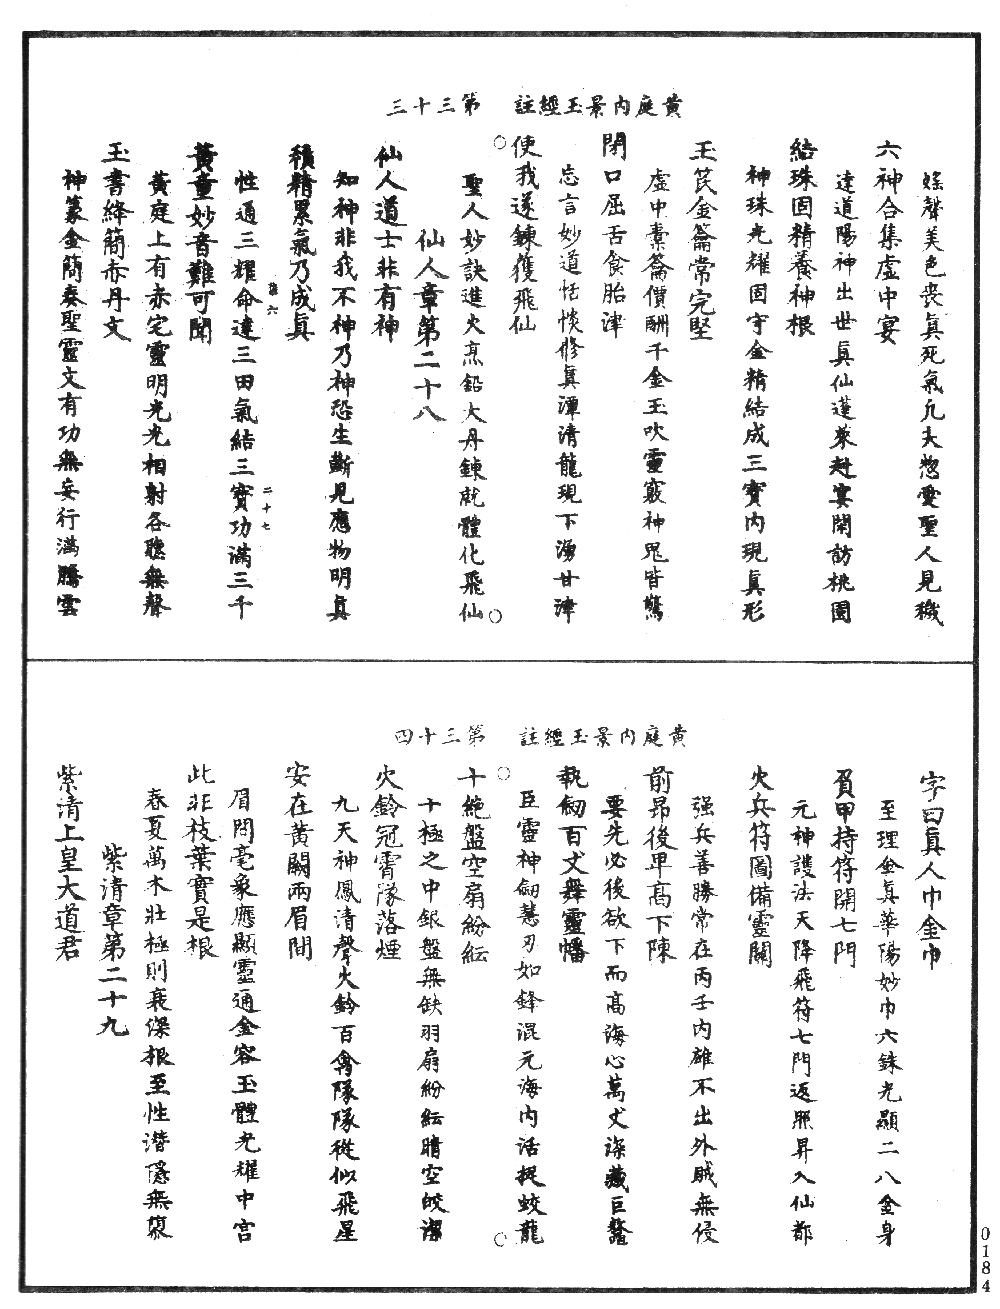 黃庭內景玉經註　第三十三
婬聲美色喪眞死氣凢夫惣愛聖人見機
六神合集虛中宴
達道陽神出世眞仙蓬萊赴宴閑訪桃園
結珠固精養神根
神珠光耀固守金精結成三寶內現眞形
玉茞金籥常完堅
虛中橐籥價酬千金玉吹靈竅神鬼皆驚
閉口屈舌食胎津
忘言妙道恬惔修眞潭清龍現下湧甘津
使我遂鍊獲飛仙
聖人妙訣進火烹鉛大丹鍊就體化飛仙
仙人章第二十八
仙人道士非有神
知神非我不神乃神恐生斷見應物明眞
積精累氣乃成眞
二十七
性通三耀命達三田氣結三寶功滿三千
黃童妙音難可聞
黃庭上有赤宅靈明光光相射各聽無聲
玉書絳簡赤丹文
神篆金簡奏聖靈文有功無妄行滿騰雲
黃庭內景玉經註　第三十四
字曰眞人巾金巾
至理金眞華陽妙巾六銖光顯二八金身
負甲持符開七門
元神護法天降飛符七門返照昇入仙都
火兵符圖備靈關
强兵善勝常在丙壬內雄不出外賊無侵
前昻後卑高下陳
要先必後欲下而高海心萬丈深藏巨鼇
執劒百丈舞靈幡
臣靈神劒慧刃如鋒混元海內活捉蛟龍
十絕盤空扇紛紜
十極之中銀盤無缺羽扇紛紜晴空皎潔
火鈴冠霄隊落煙
九天神鳳清聲火鈴百禽隊隊從似飛星
安在黃闕兩眉間
眉間毫象應顯靈通金容玉體光耀中宮
此非枝葉實是根
春夏萬木壯極則衰深根至性潛隱無衰
紫清章第二十九
紫清上皇大道君
0184